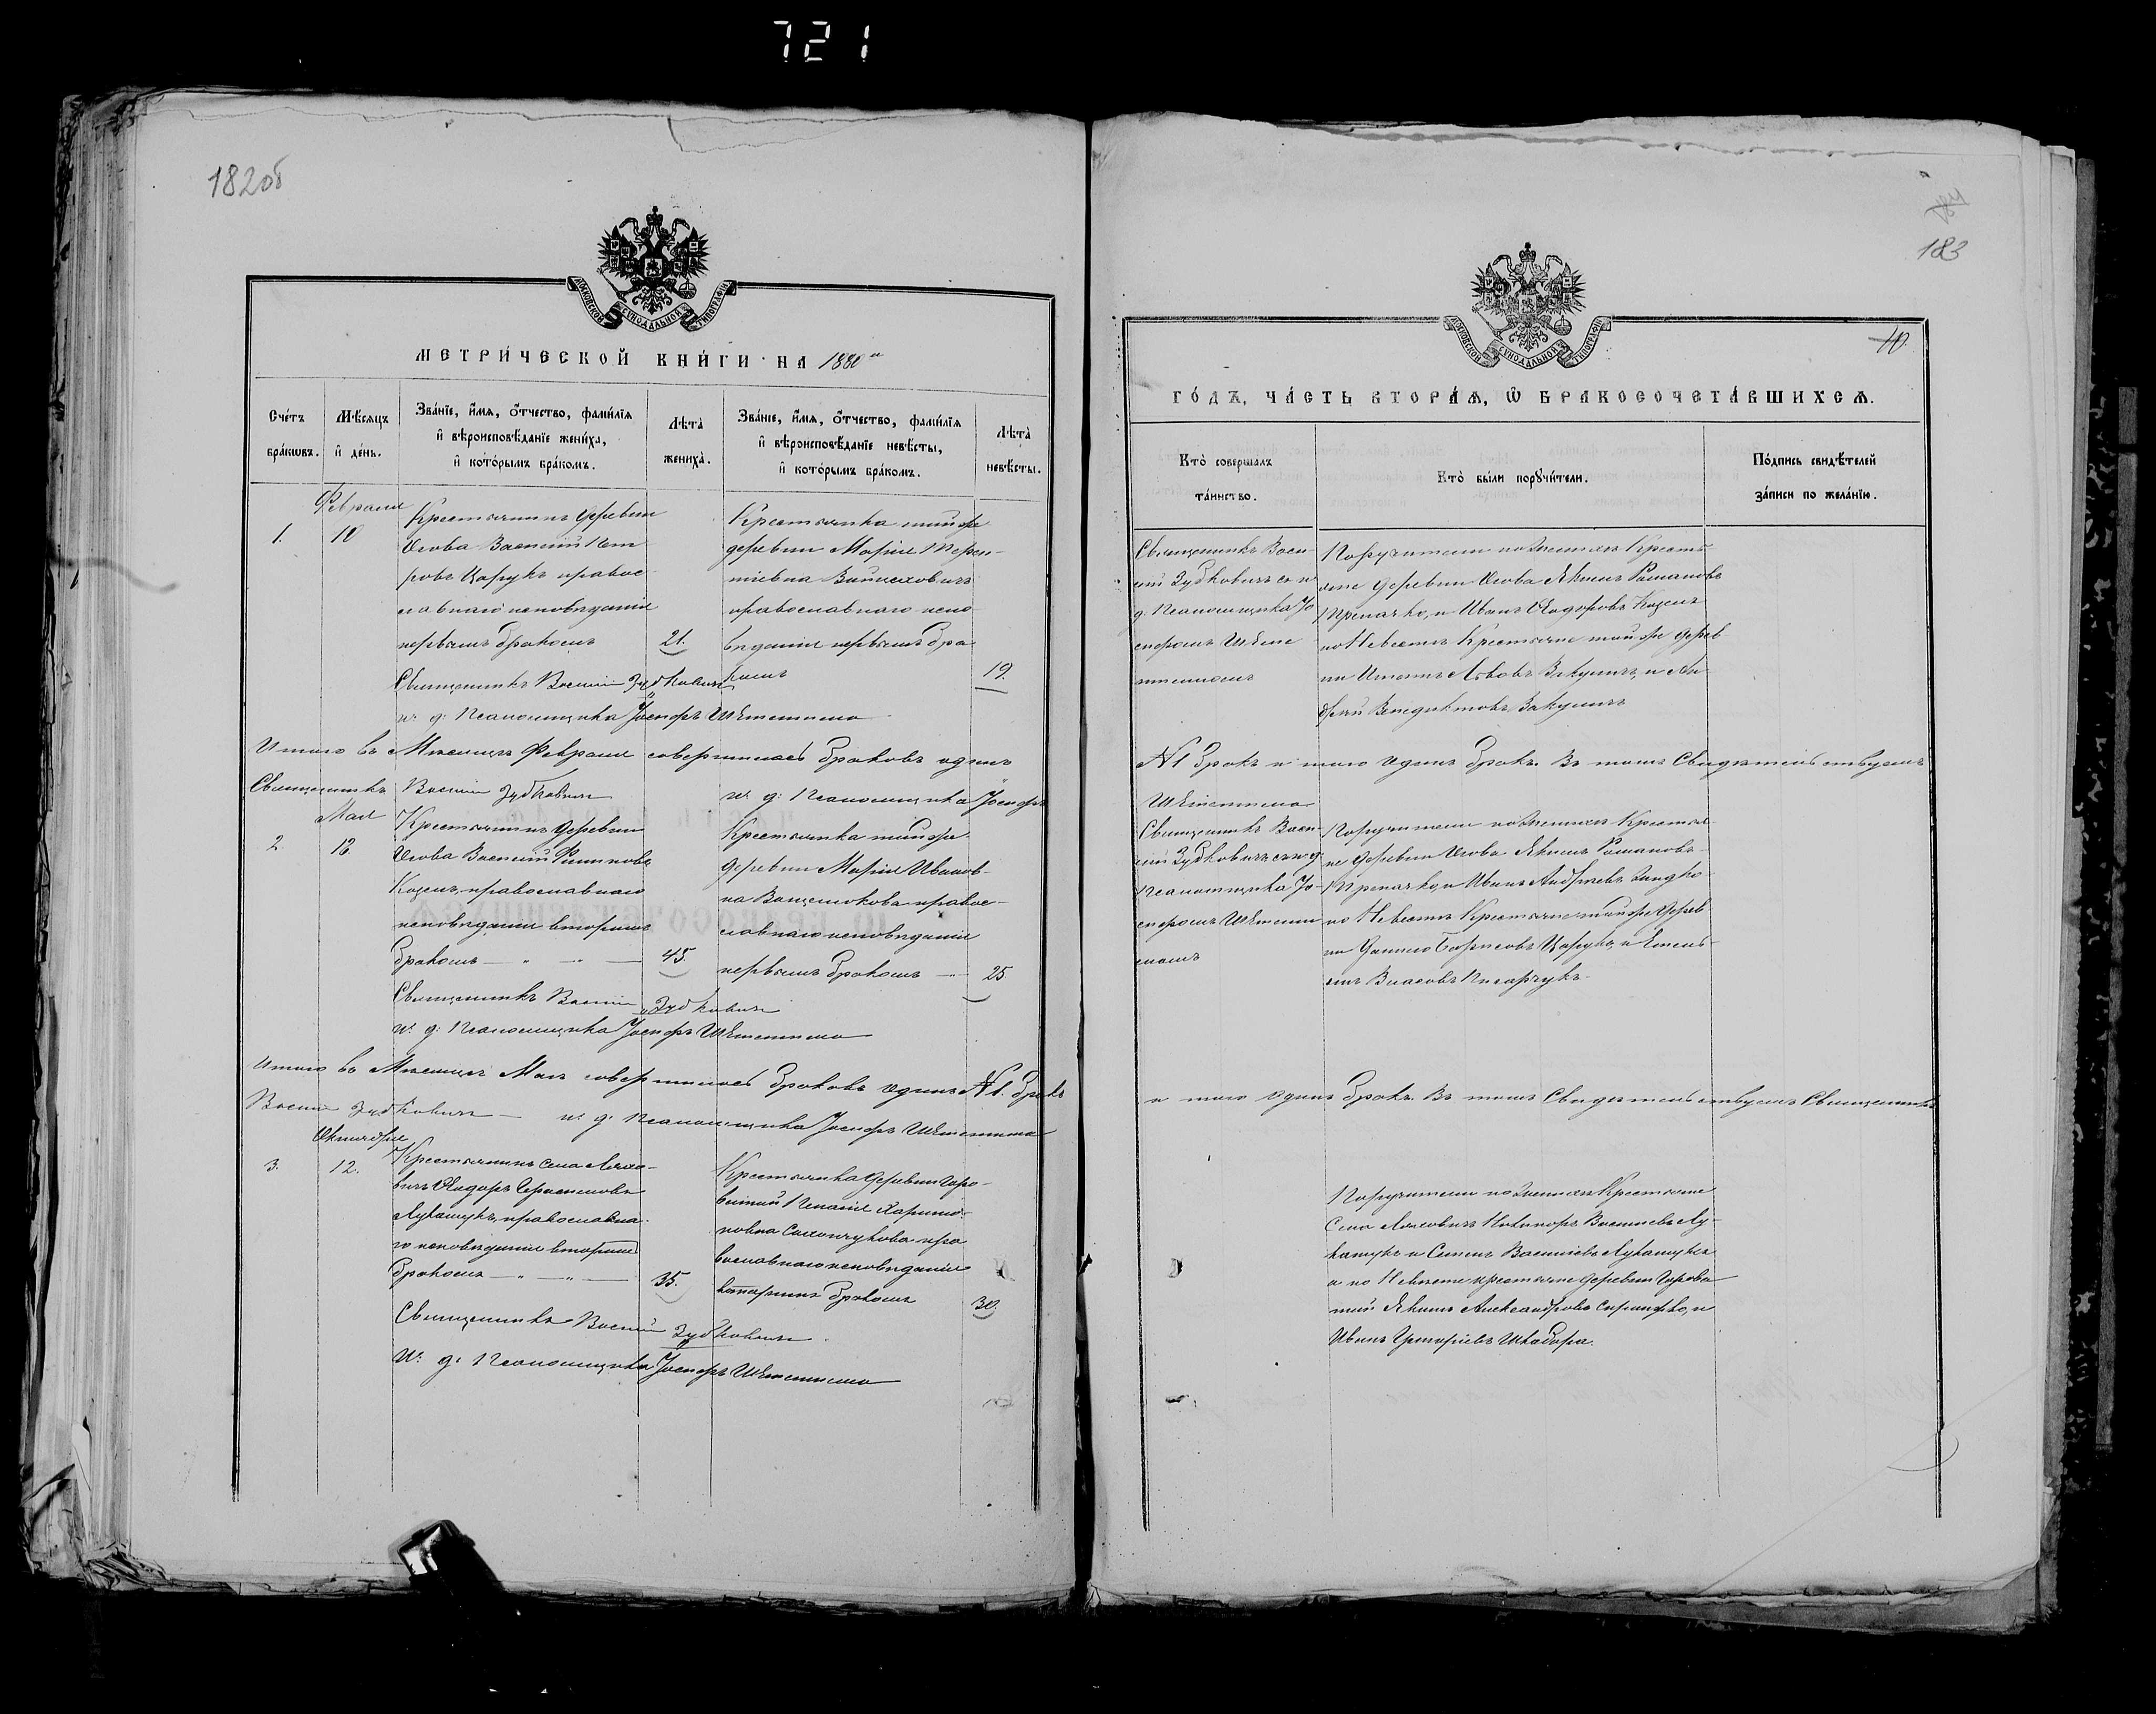 721
182об
183
10
МОСКОВСКОЙ СѴНОДАЛЬНОЙ ТИПОГРАФІИ
МЕТРИ́ЧЕСКОЙ КНИ́ГИ НА 1880й
Сче́тъ бра́кѡвъ.
Мѣ́сяцъ и҆ де́нь.
Зва́нїе, и҆́мѧ, ѻ҆́тчество, фами́лїѧ
и҆ вѣроисповѣ́данїе жениха̀,
и҆ кото́рымъ бра́комъ.
Лѣ́та̀ жениха̀.
Зва́нїе, и҆́мѧ, ѻ҆́тчество, фами́лїѧ
и҆ вѣроисповѣ́данїе невѣ́сты,
и҆ кото́рымъ бра́комъ.
Лѣ́та̀ невѣ́сты.
Февраля
1.
10
Крестьянинъ деревни
Осова Василій Пет
ровъ Царукъ правос
лавнаго исповѣданія
первымъ бракомъ
21.
Крестьянка той же
деревни Марія Терен-
тіевна
православнаго испо
вѣданія первымъ бра
комъ
19.
Священникъ Василій Зубковичъ
и. д. Псаломщика Іосифъ
Итого въ Мѣсяцѣ Февралѣ совершилось браковъ одинъ
Священникъ Василій Зубковичъ
и. д. Псаломщика Іосифъ
Мая
2.
18
Крестьянинъ деревни
Осова Василій Филиповъ
Козелъ, православнаго
исповѣданія вторымъ
бракомъ
45.
Крестьянка той же
деревни Марія Иванов-
на правос-
лавнаго исповѣданія
первымъ бракомъ
25
Священникъ Василій Зубковичъ
и. д. Псаломщика Іосифъ
Итого въ Мѣсяцѣ Маѣ совершилось браковъ одинъ №1. бракъ
Василій Зубковичъ и. д. Псаломщика Іосифъ
Октября
3.
12.
Крестьянинъ села Ляхо-
вичъ Ѳеодоръ Герасимовъ
Лукашукъ, православна-
го исповѣданія вторымъ
бракомъ
35.
Крестьянка деревни Горо-
Харито-
новна пра
вославнаго исповѣданія
вторымъ бракомъ
30.
Священникъ Василій Зубковичъ
и. д. Псаломщика Іосифъ
МОСКОВСКОЙ СѴНОДАЛЬНОЙ ТИПОГРАФІИ
ГО́ДЪ, ЧА́СТЬ ВТОРА́Ѧ, Ѽ БРАКОСОЧЕТА́ВШИХСѦ.
Кто̀ соверша́лъ
та́инство.
Кто̀ бы́ли порꙋчи́тели.
По́дпись свидѣ́телей
за́писи по жела́нїю.
Священникъ Васи-
лій Зубковичъ съ и.
д. Псаломщика Іо
сифомъ
Поручители по Женихѣ Кресть-
яне деревни Осова Якимъ Романовъ
и Иванъ Ѳеодоровъ Козелъ
по Невѣстѣ Крестьяне той же дерев-
ни и Ан-
дрей Венедиктовъ Вакуличъ
№1 бракъ и того одинъ бракъ. Въ томъ Свидѣтельствуемъ
Священникъ Васи-
лій Зубковичъ съ и. д
Псаломщика Іо-
сифомъ
Поручители по Женихѣ Крестья-
не деревни Осова Якимъ Романовъ
и Иванъ Андреевъ
по Невѣстѣ Крестьяне той же дерев
ни Данило Борисовъ Царукъ, и Емель-
янъ Власовъ Писарчукъ
и того одинъ бракъ. Въ томъ Свидѣтельствуемъ Священникъ
Поручители по Женихѣ Крестьяне
Села Ляховичъ Никаноръ Васильевъ Лу-
кашукъ и Семенъ Васильевъ Лукашукъ
а по Невѣстѣ крестьяне деревни
Якимъ Александровъ и
Иванъ Григорьевъ Шкабара.